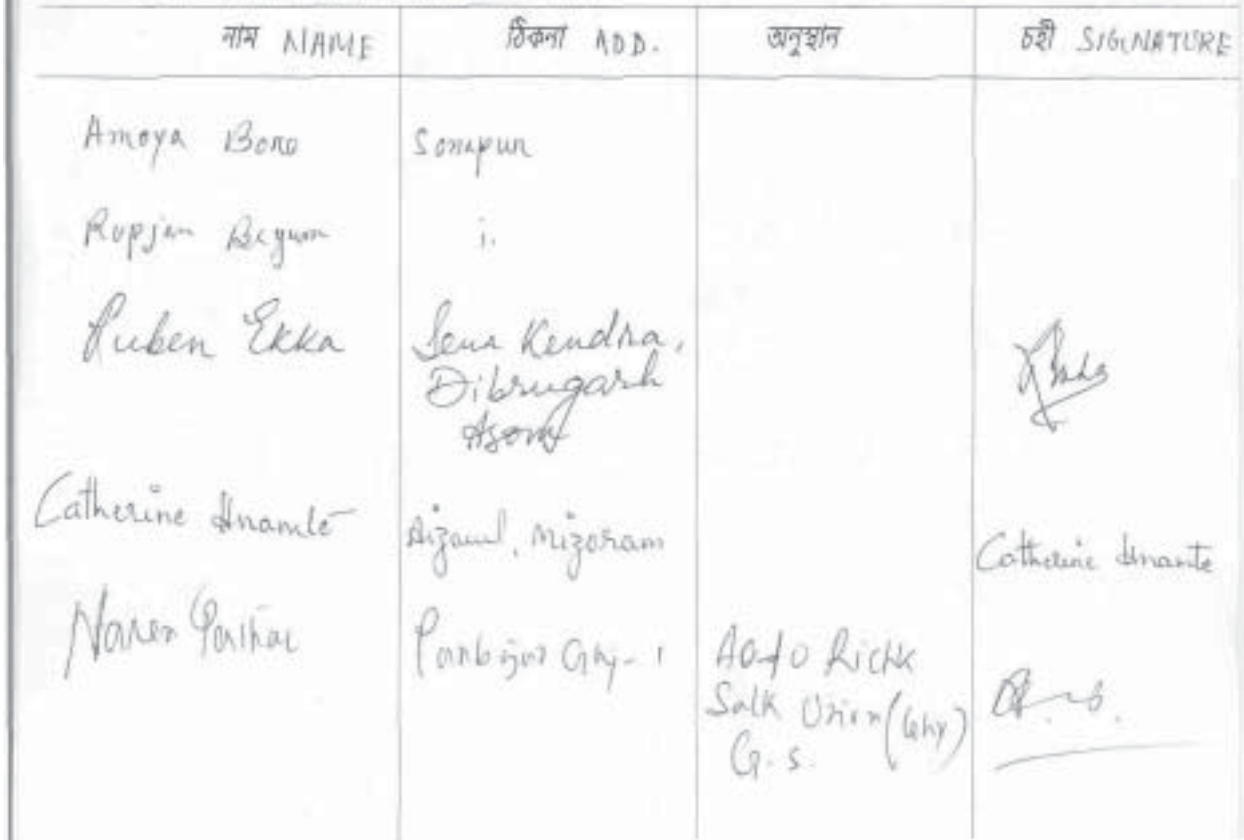 নাম NAME ঠিকনা ADD. অনুষ্ঠান চহী SIGNATURE
Amoya Boro Sonapur
Rupjan Begum
Ruben Ekka Seva Kendra,
Dibrugarh
Asom
Catherine Hnamte Aizawl, Mizoram Catherine Hnamte
Naren Ghy-1
Salk Union (Ghy)
G.S.